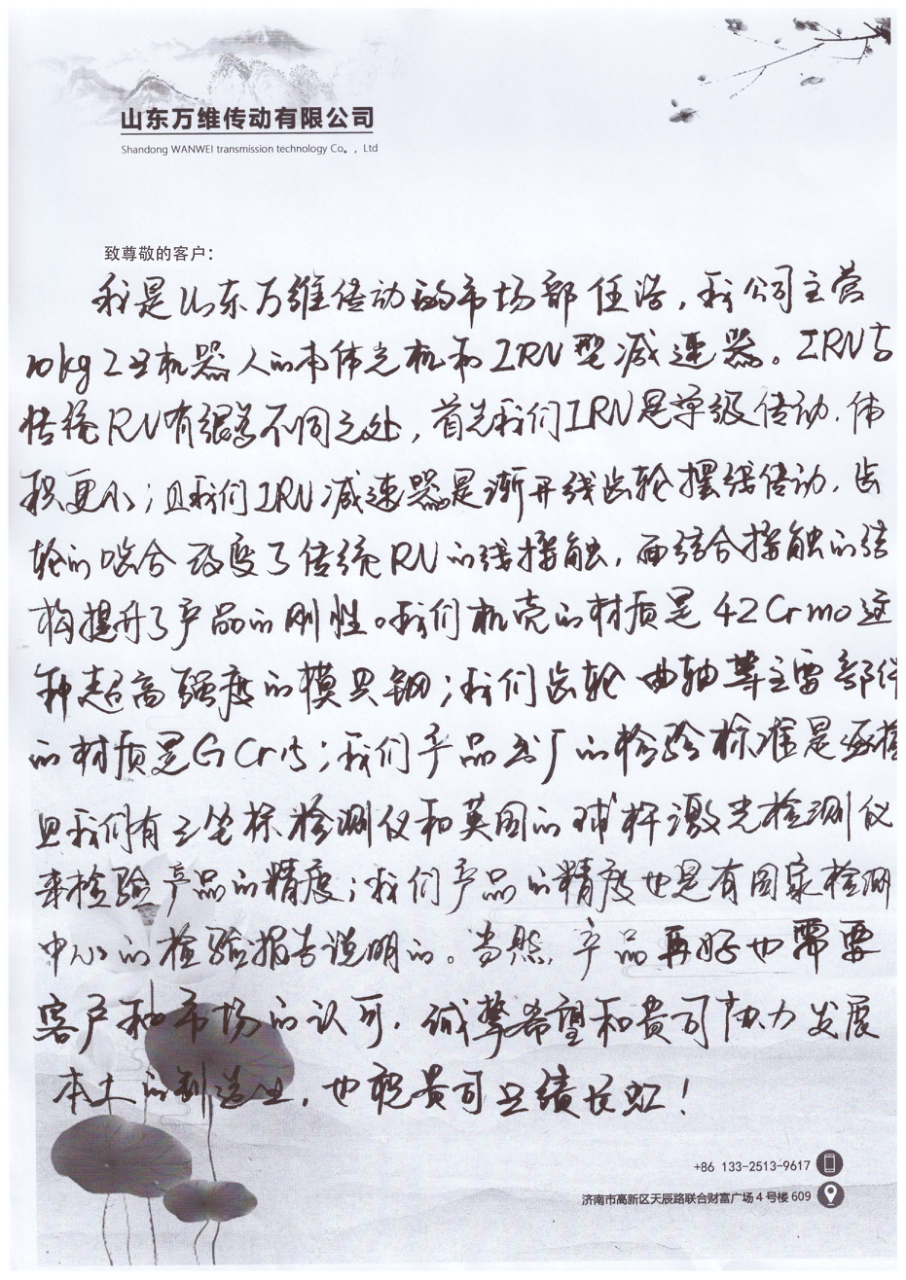 山东万维传动有限公司
Shandong WANWEI transmission technology Co。, Ltd
致尊敬的客户:
我是山东万维传动的市场部任浩,我公司主营
10kg工业机器人的本体光机和IRN型减速器。IRN与
传统RV有很多不同之处,首先我们IRN是单级传动,体
积更小;且我们IRN减速器是渐开线齿轮摆线传动,齿
轮的啮合改变了传统RV的线接触,面结合接触的结
构提升了产品的刚性。我们机壳的材质是42Crmo这
种超高强度的模具钢;我们齿轮曲轴等主要部件
的材质是GCr15;我们产品出厂的检验标准是逐检
且我们有三坐标检测仪和英国的球杆激光检测仪
来检验产品的精度;我们产品的精度也是有国家检测
中心的检验报告说明的。当然,产品再好也需要
客户和市场的认可,诚挚希望和贵司协力发展
本土的制造业,也祝贵司业绩长虹!
+86 133-2513-9617
济南市高新区天辰路联合财富广场4号楼609